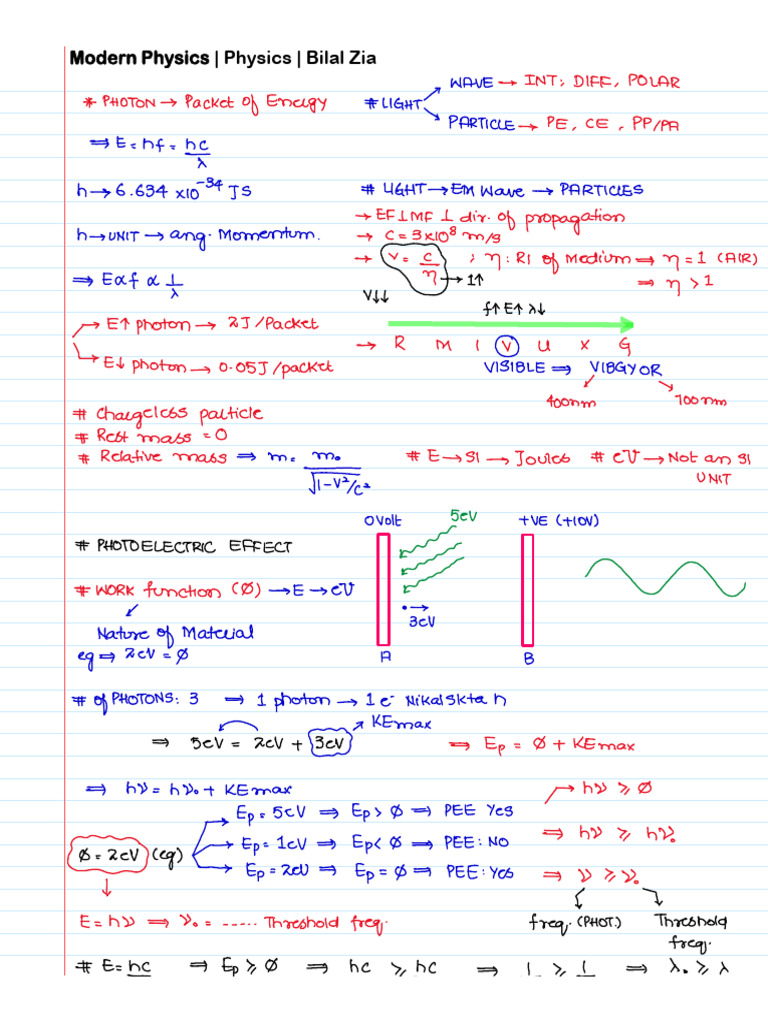 Modern Physics | Physics | Bilal Zia
* PHOTON → Packet of Energy
# LIGHT
WAVE → INT; DIFF, POLAR
PARTICLE → PE, CE, PP/PA
⇒ E = hf = hc/λ
h → 6.634 ×10⁻³⁴ JS
h → UNIT → ang. Momentum.
⇒ E∝f ∝ 1/λ
# LIGHT → EM Wave → PARTICLES
→ EF⊥MF ⊥ dir. of propagation
→ C = 3×10⁸ m/s
→ v = c/η ; η : RI of Medium ⇒ η = 1 (AIR)
→ 1↑ ⇒ η > 1
V↓↓
f↑E↑λ↓
→ R M I V U X G
VISIBLE ⇒ VIBGYOR
400nm 700nm
E↑ photon → 2J/Packet
E↓ photon → 0.05J/packet
# Chargeless particle
# Rest mass = 0
# Relative mass ⇒ m = m₀/√1-V²/C²
# E → SI → Joules # eV → Not an SI
UNIT
# PHOTOELECTRIC EFFECT
0 Volt 5eV +VE (+10V)
# WORK function (Ø) → E → eV
Nature of Material
eg ⇒ 2eV = Ø
3eV
A B
# of PHOTONS: 3 ⇒ 1 photon → 1 e⁻ Nikalskta h
KEmax
⇒ 5eV = 2eV + 3eV ⇒ Eₚ = Ø + KEmax
⇒ hν = hν₀ + KEmax
Eₚ = 5eV ⇒ Eₚ > Ø ⇒ PEE Yes
Ø = 2eV (eg)
Eₚ = 1eV ⇒ Eₚ < Ø ⇒ PEE : NO
Eₚ = 2eV ⇒ Eₚ = Ø ⇒ PEE : Yes
→ hν ≥ Ø
⇒ hν ≥ hν₀
⇒ ν ≥ ν₀
freq. (PHOT.) Threshold
freq.
E = hν ⇒ ν₀ = ----- Threshold freq.
# E = hc ⇒ Eₚ ≥ Ø ⇒ hc ≥ hc ⇒ 1 ≥ 1 ⇒ λ₀ ≥ λ